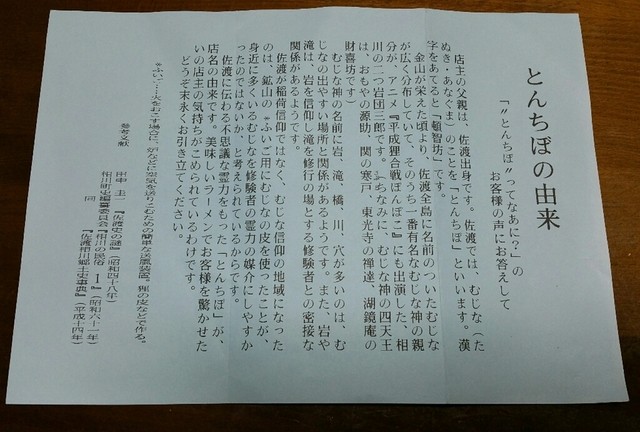 とんちぼの由来
「〝とんちぼ〟ってなあに?」の
お客様の声にお答えして
店主の父親は、佐渡出身です。佐渡では、むじな(た
ぬき・あなぐま)のことを「とんちぼ」といいます。漢
字をあてると「頓智坊」です。
金山が栄えた頃より、佐渡全島に名前のついたむじな
が広く分布していて、そのうち一番有名なむじな神の親
分が、アニメ『平成狸合戦ぽんぽこ』にも出演した、相
川の二つ岩団三郎です。ちなみに、むじな神の四天王
は、おもやの源助、関の寒戸、東光寺の禅達、湖鏡庵の
財喜坊です。
むじな神の名前に岩、滝、橋、川、穴が多いのは、む
じなの出やすい場所と関係があるようです。また、岩や
滝は、岩を信仰し滝を修行の場とする修験者との密接な
関係があるようです。
佐渡が稲荷信仰ではなく、むじな信仰の地域になった
のは、鉱山の〝ふいご用にむじなの皮を使ったことが、
身近に多くいるむじなを修験者の霊力の媒介にしやすか
ったのではないか、と考えられているからです。
佐渡に伝わる不思議な霊力をもった「とんちぼ」が、
店名の由来です。美味しいラーメンでお客様を驚かせた
いの店主の気持ちがこめられているわけです。
どうぞ末永くお引き立てください。
〝ふいご…火をおこす場合に、炉などに空気を送りこむための簡単な送風装置。狸の皮などで作る。
参考文献
田中圭一『佐渡史の謎』(昭和四十八年)
相川町史編纂委員会『相川の民俗Ⅰ』(昭和六十一年)
同『佐渡相川郷土史事典』(平成十四年)